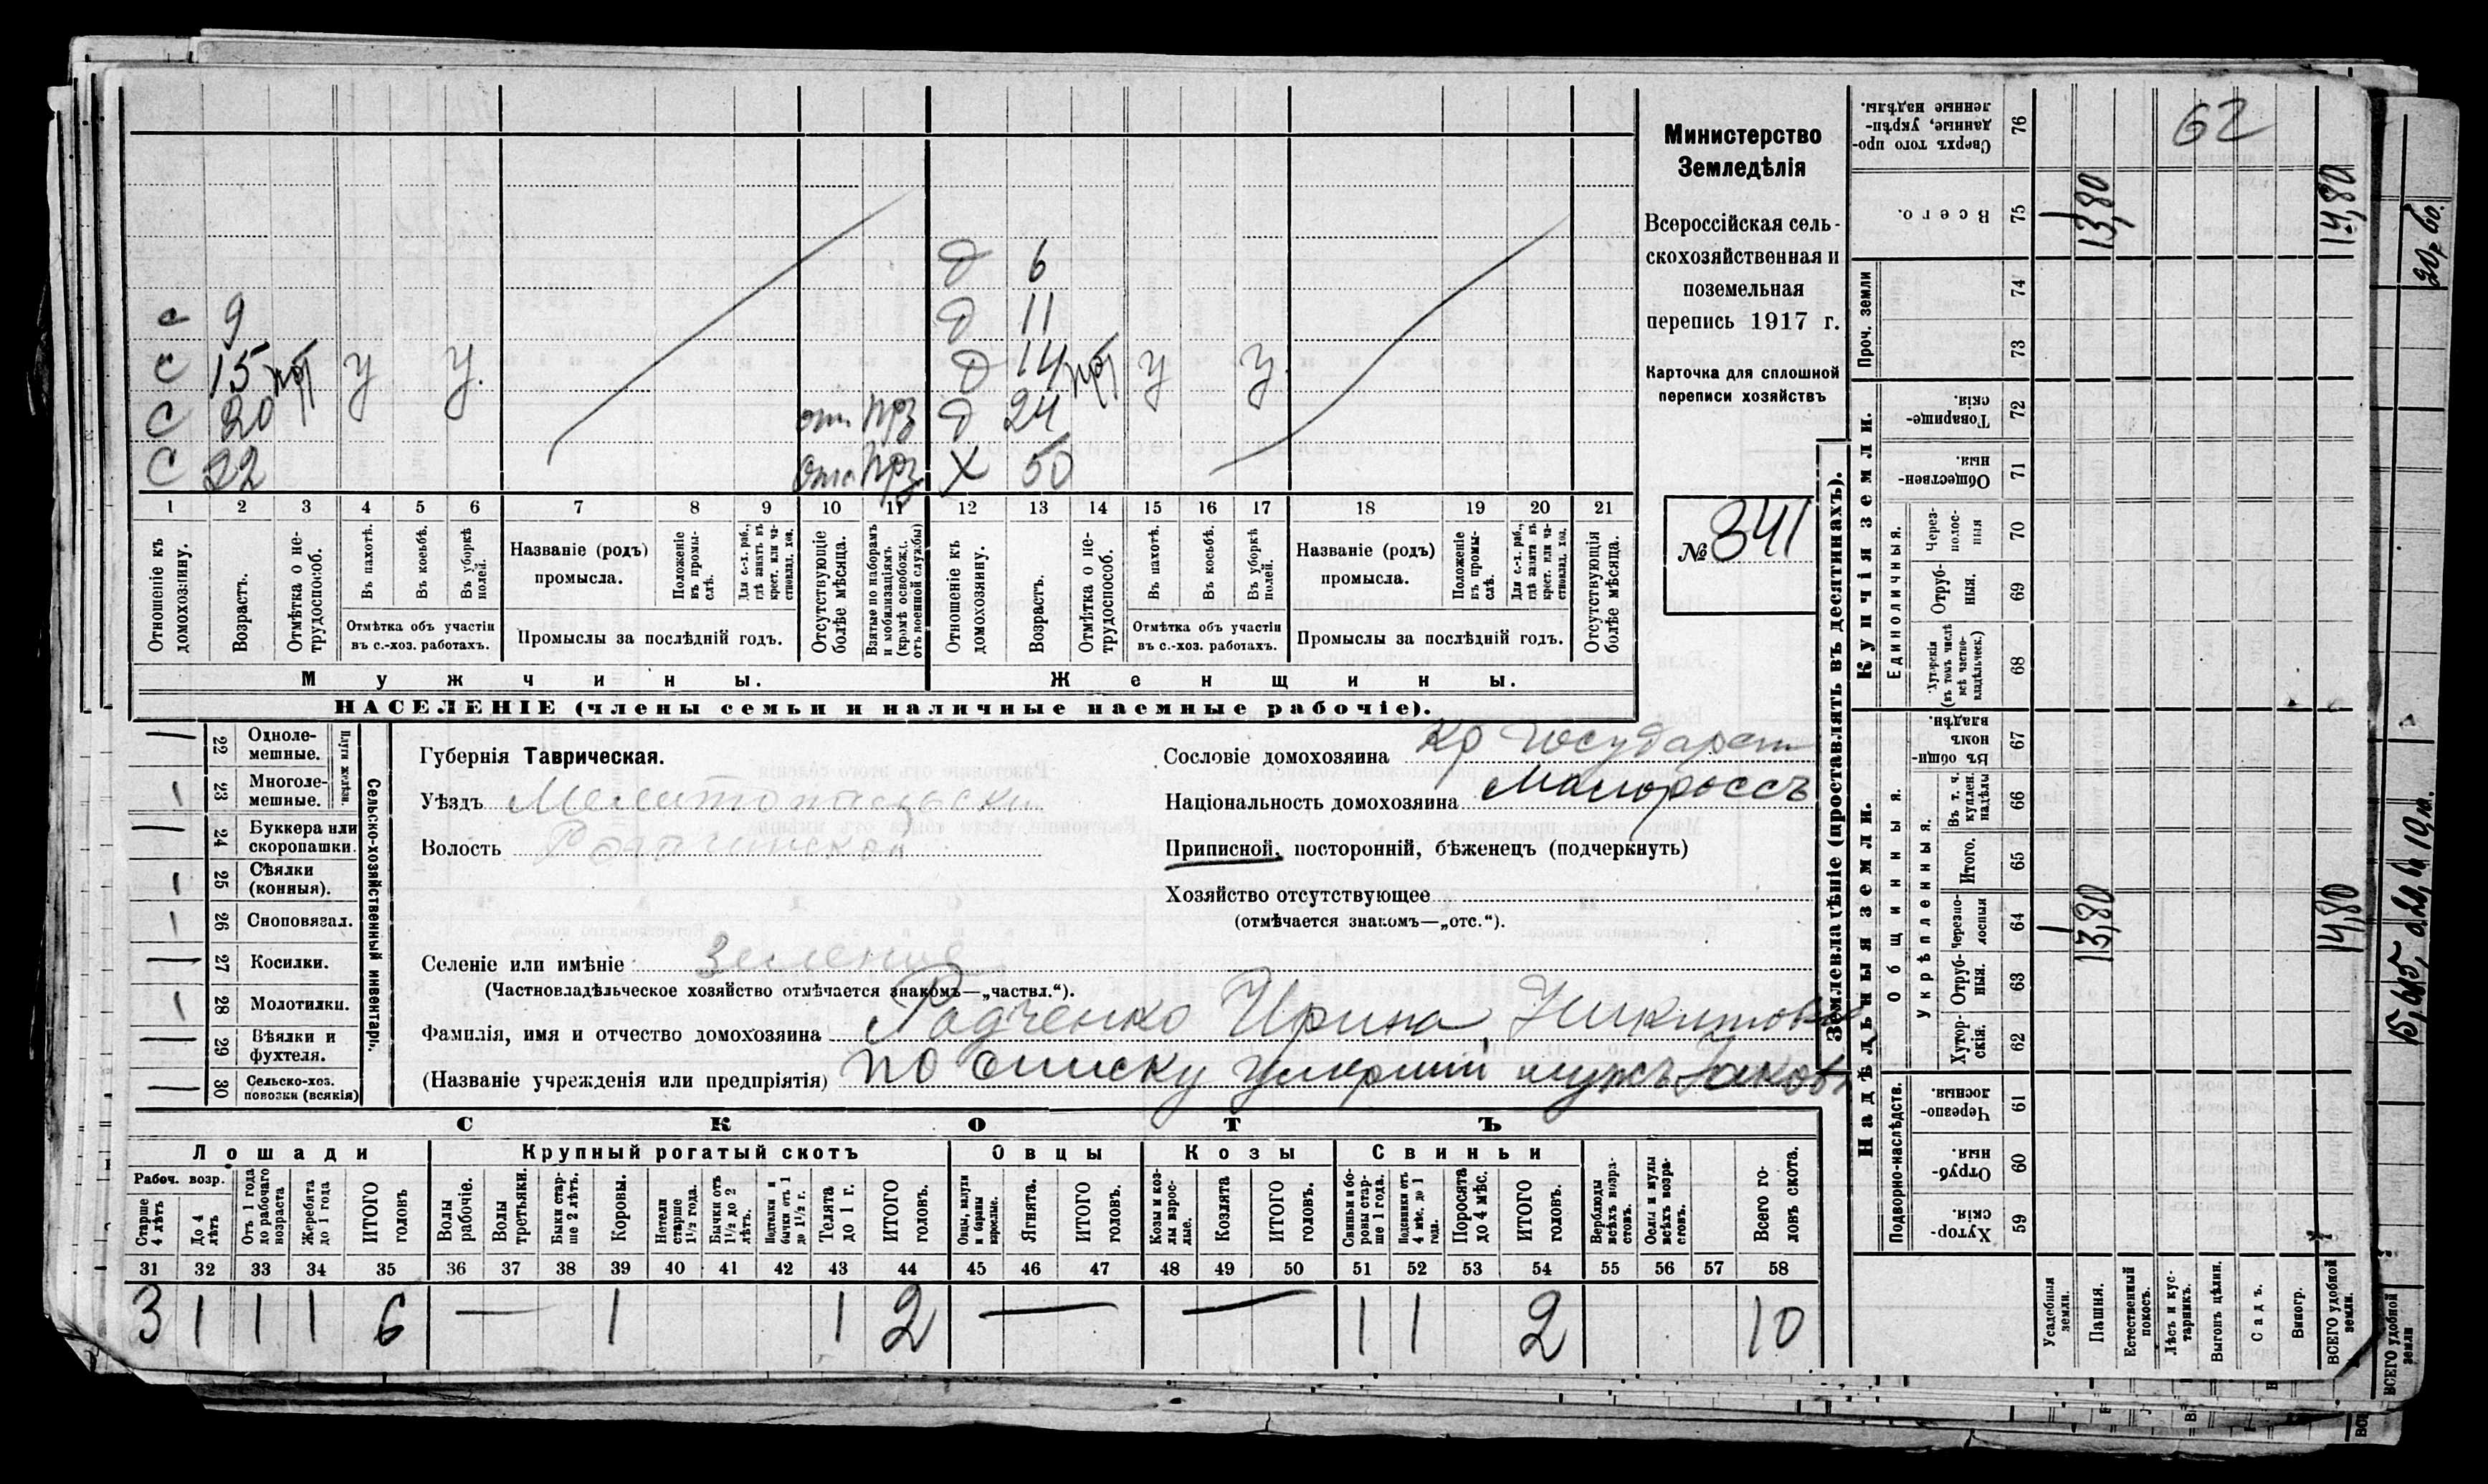 62
Министерство
Земледѣлія
Всероссійская сель-
скохозяйственная и
поземельная
перепись 1917 г.
Карточка для сплошной
переписи хозяйствъ
№ 341
Д 6
с 9 Д 11
с 15 У У. Д 14 У У.
С 20 Д 24
С 22 Х 50
1 2 3 4 5 6 7 8 9 10 11 12 13 14 15 16 17 18 19 20 21
Отношеніе къ домохозяину.
Возрастъ.
Отмѣтка о не-трудоспособ.
Въ пахотѣ.
Въ косьбѣ.
Въ уборкѣ полей.
Отмѣтка объ участіи
въ с.-хоз. работахъ.
Названіе (родъ)
промысла.
Положеніе въ промы-слѣ.
Для с.-х. раб., гдѣ занятъ въ крест. или ча-стновлад. хоз.
Промыслы за послѣдній годъ.
Отсутствующіе болѣе мѣсяца.
Взятые по наборамъ и мобилизаціямъ (кромѣ освобожд. отъ военной службы)
Отношеніе къ домохозяину.
Возрастъ.
Отмѣтка о не-трудоспособ.
Въ пахотѣ.
Въ косьбѣ.
Въ уборкѣ полей.
Отмѣтка объ участіи
въ с.-хоз. работахъ.
Названіе (родъ)
промысла.
Положеніе въ промы-слѣ.
Для с.-х. раб., гдѣ занята въ крест. или ча-стновлад. хоз.
Промыслы за послѣдній годъ.
Отсутствующія болѣе мѣсяца.
Мужчины. Женщины.
НАСЕЛЕНІЕ (члены семьи и наличные наемные рабочіе).
Сельско-хозяйственный инвентарь.
Плуги желѣзн.
— 22 Одноле-мешные.
1 23 Многоле-мешные.
— 24 Буккера или скоропашки.
1 25 Сѣялки (конныя).
1 26 Сноповязал.
— 27 Косилки.
1 28 Молотилки.
— 29 Вѣялки и фухтеля.
— 30 Сельско-хоз. повозки (всякія)
Губернія Таврическая.
Уѣздъ Мелитопольскій
Волость
Сословіе домохозяина Кр Государст
Національность домохозяина Малороссъ
Приписной, посторонній, бѣженецъ (подчеркнуть)
Хозяйство отсутствующее
(отмѣчается знакомъ—„отс.“).
Селеніе или имѣніе Зеленое
(Частновладѣльческое хозяйство отмѣчается знакомъ—„частвл.“).
Фамилія, имя и отчество домохозяина Радченко Ирина Никитовна
(Названіе учрежденія или предпріятія) по списку умершій мужъ Яковъ
СКОТЪ
Лошади Крупный рогатый скотъ Овцы Козы Свиньи
Рабоч. возр.
Старше 4 лѣтъ
До 4 лѣтъ
Отъ 1 года до рабочаго возраста
Жеребята до 1 года
ИТОГО головъ
Волы рабочіе.
Волы третьяки.
Быки стар-ше 2 лѣтъ.
Коровы.
Нетели старше 1½ года.
Бычки отъ 1½ до 2 лѣтъ.
Подтелки и бычки отъ 1 до 1½ г.
Телята до 1 г.
ИТОГО головъ.
Овцы, валухи и бараны взрослые.
Ягнята.
ИТОГО головъ.
Козы и коз-лы взрос-лые.
Козлята
ИТОГО головъ.
Свиньи и бо-ровы стар-ше 1 года.
Подсвинки отъ 4 мѣс. до 1 года.
Поросята до 4 мѣс.
ИТОГО головъ.
Верблюды всѣхъ возра-стовъ.
Ослы и мулы всѣхъ возра-стовъ.
Всего го-ловъ скота.
31 32 33 34 35 36 37 38 39 40 41 42 43 44 45 46 47 48 49 50 51 52 53 54 55 56 57 58
3 1 1 1 6 — 1 1 2 — — 1 1 2 10
Землевладѣніе (проставлять въ десятинахъ).
Надѣльныя земли. Купчія земли. Проч. земли
Подворно-наслѣдств.
Общинныя.
Укрѣпленныя.
Единоличныя.
59 Хутор-скія.
60 Отруб-ныя.
61 Черезпо-лосныя.
62 Хутор-скія.
63 Отруб-ныя.
64 Черезпо-лосныя
65 Итого.
66 Въ т. ч. куплен. надѣлы
67 Въ общин-номъ владѣн.
68 Хуторскія (въ томъ числѣ всѣ частно-владѣльческ.)
69 Отруб-ныя.
70 Через-полос-ныя
71 Обществен-ныя.
72 Товарище-скія.
73
74
75 Всего.
76 Сверхъ того про-данные, укрѣп-ленные надѣлы.
Усадебныя земли. 1 1
Пашня. 13,80 13,80
Естественный покосъ.
Лѣсъ и кус-тарникъ.
Выгонъ цѣлин.
Садъ.
Виногр.
ВСЕГО удобной земли. 14,80 14,80
ВСЕГО удобной земли